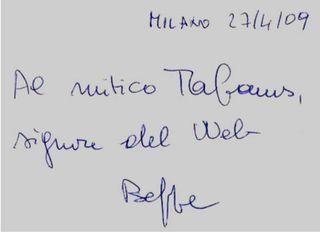 MILANO 27/4/09
Al mitico
signore del Web
Beppe